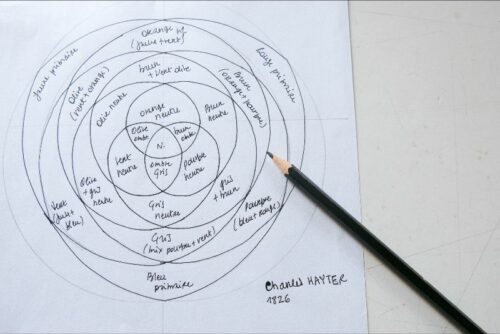 Orange
Jaune primaire
Rouge primaire
brun
+ vert olive
Olive
(vert + orange)
Brun
(orange + pourpre)
Olive neutre
Orange
neutre
Brun
neutre
Olive
ombre
brun
ombre
N.
Vert
neutre
ombre
Gris
Pourpre
neutre
Olive
+ gris
neutre
gris
+ brun
Gris
neutre
Vert
bleu)
Pourpre
(bleu + rouge)
Gris
(mix pourpre + vert)
Bleu
primaire
Charles HAYTER
1826